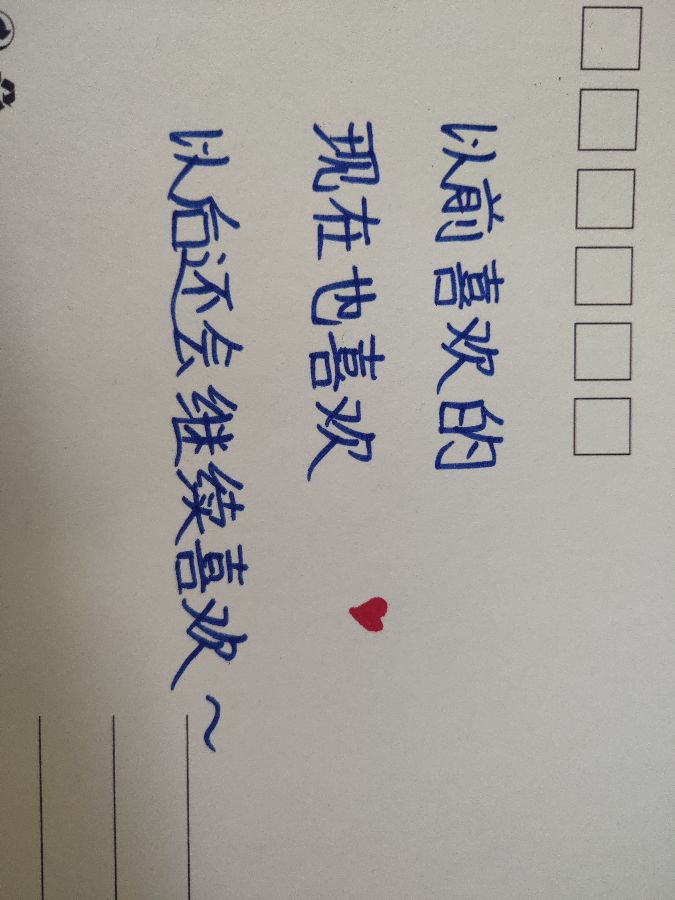 以前喜欢的
现在也喜欢
以后还会继续喜欢~